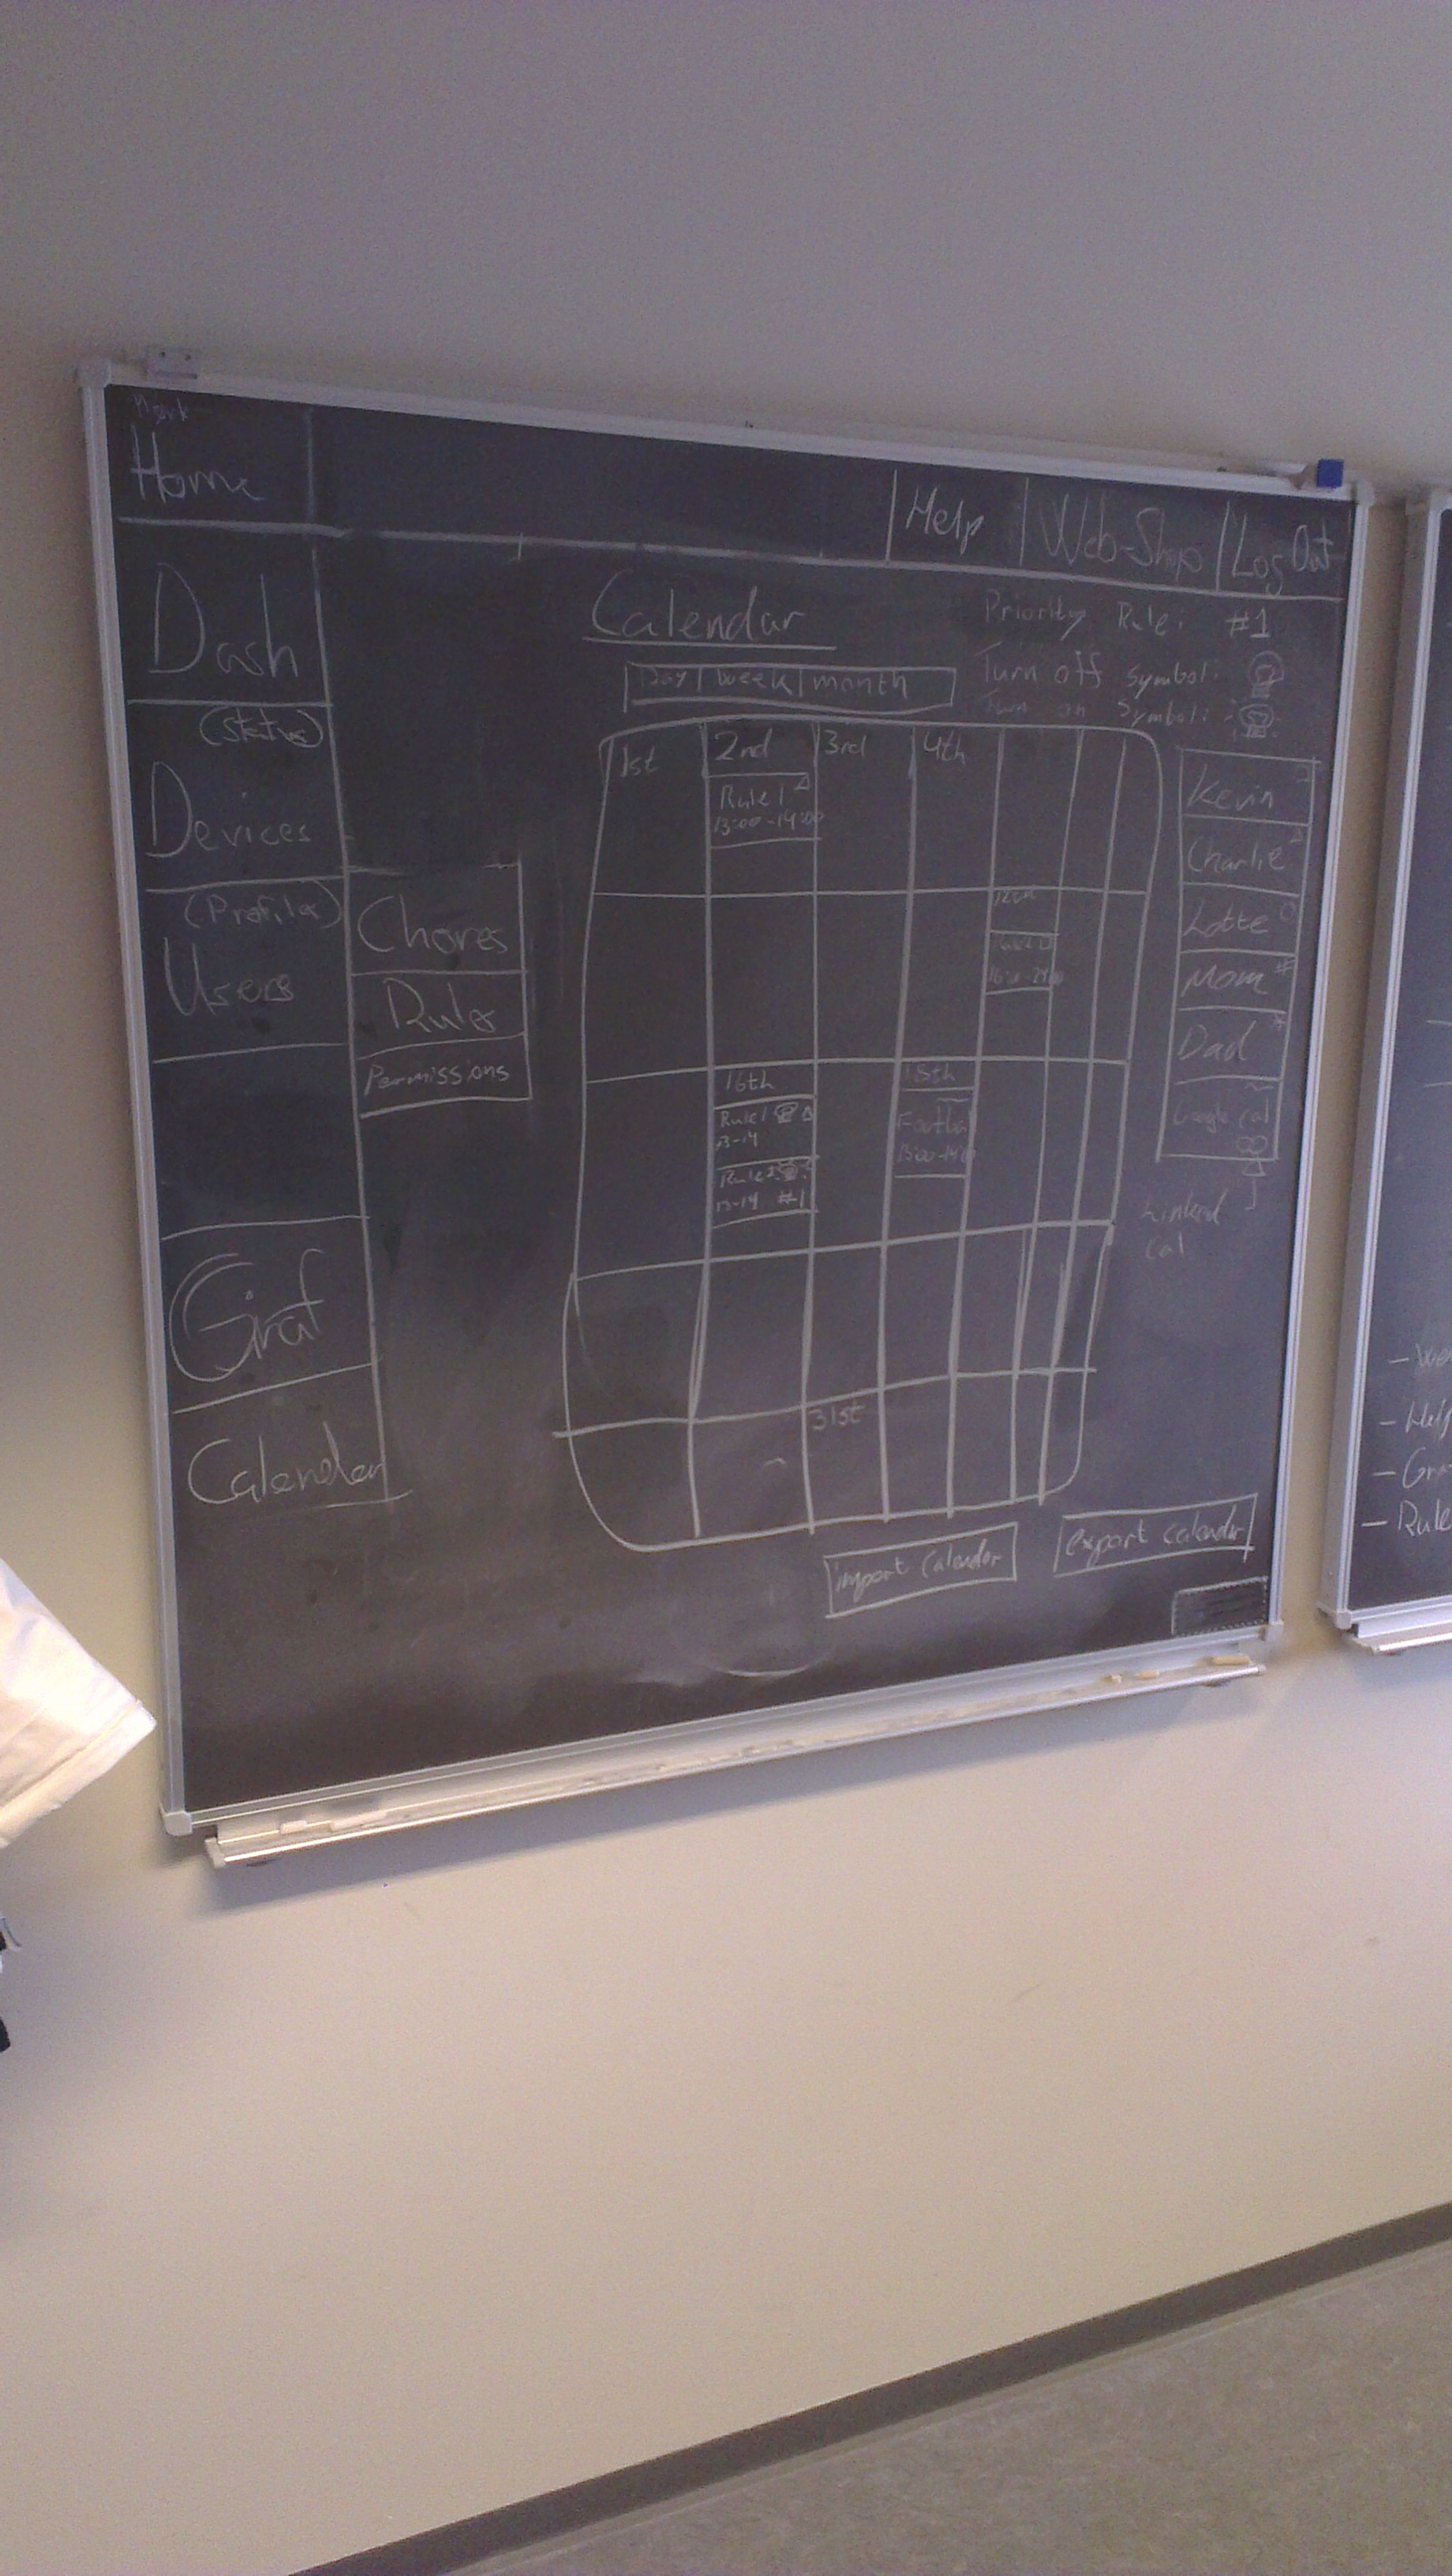 Home
Help
Web-Shop
Log Out
Dash
(Status)
Devices
(Profiler)
Users
Chores
Rules
Permissions
Graf
Calender
Calendar
Day | week | month
Priority Rule: #1
Turn off symbol:
Turn on symbol:
1st
2nd
3rd
4th
Rule 1
13:00-14:00
12th
16th
Rule 1
13-14
Rule 2
13-14 #1
18th
Footbal
13:00-14:00
31st
Kevin
Charlie
Lotte
Mom #
Dad *
Google cal
Linked
cal
import calendar
export calendar
- Help
- Gra
- Rule